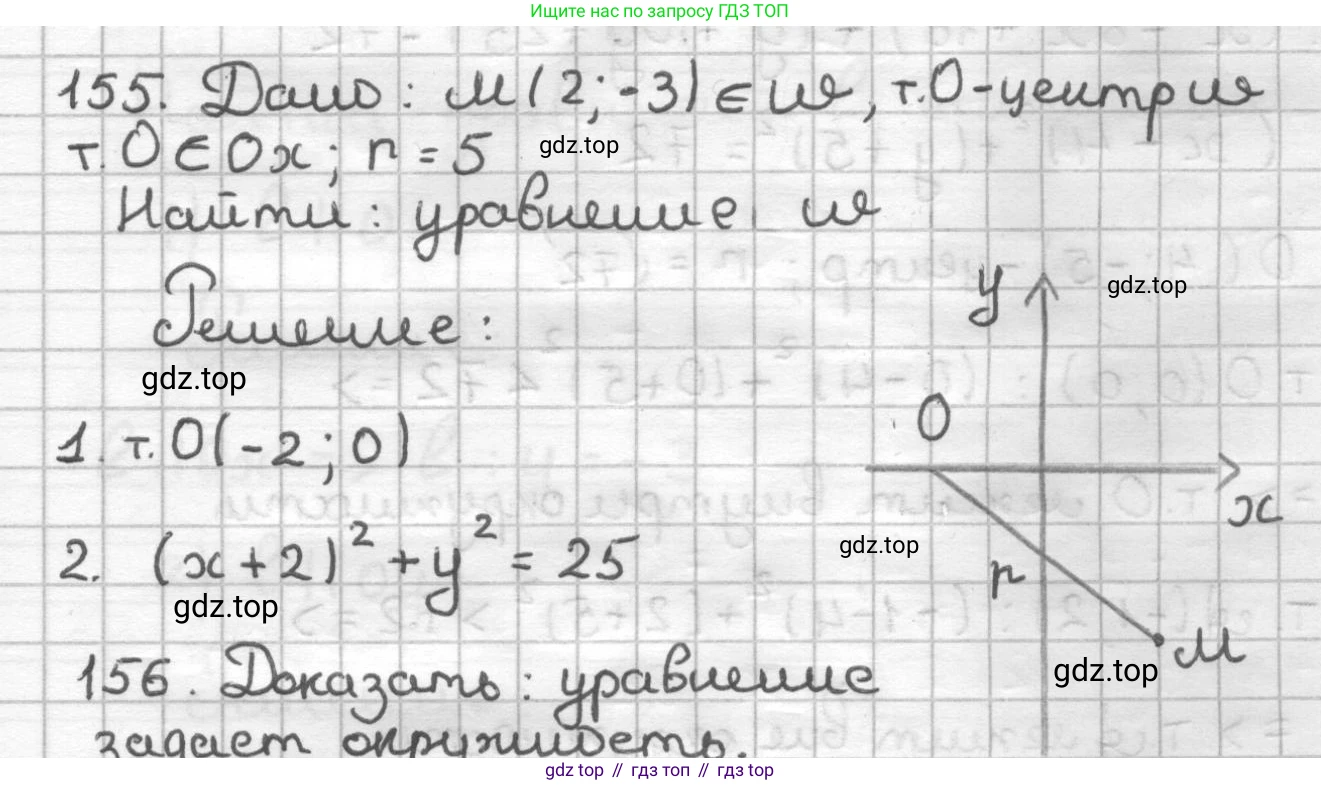 Ищите нас по запросу ГДЗ ТОП
155. Дано: M(2; -3) ∈ ω, т.O-центр ω
т. O ∈ Ox; r = 5
gdz.top
Найти: уравнение ω
Решение:
gdz.top
y
gdz.top
1. т. O(-2; 0)
O
x
2. (x+2)² + y² = 25
gdz.top
r
gdz.top
M
gdz.top
156. Доказать: уравнение
задает окружность.
gdz top // гдз топ // gdz top